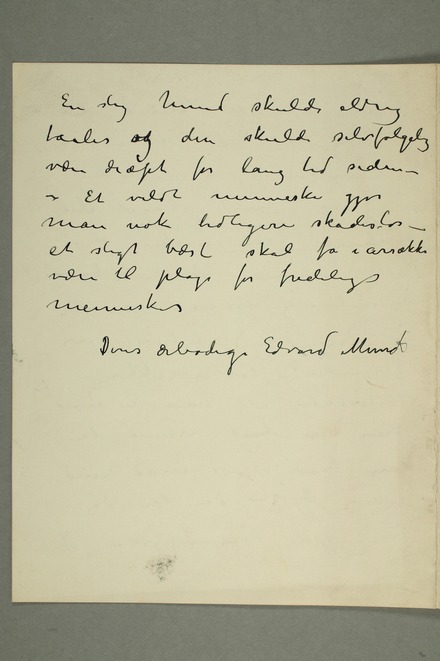 En slig hund skulde aldrig
taales og den skulde selvfølgelig
være dræpt for lang tid siden –
– Et vildt menneske gjør
man nok tidligere skadesløs –
et sligt bæst skal få i årsækker
være til plage for fredelige
mennesker
Deres ærbødige Edvard Munch